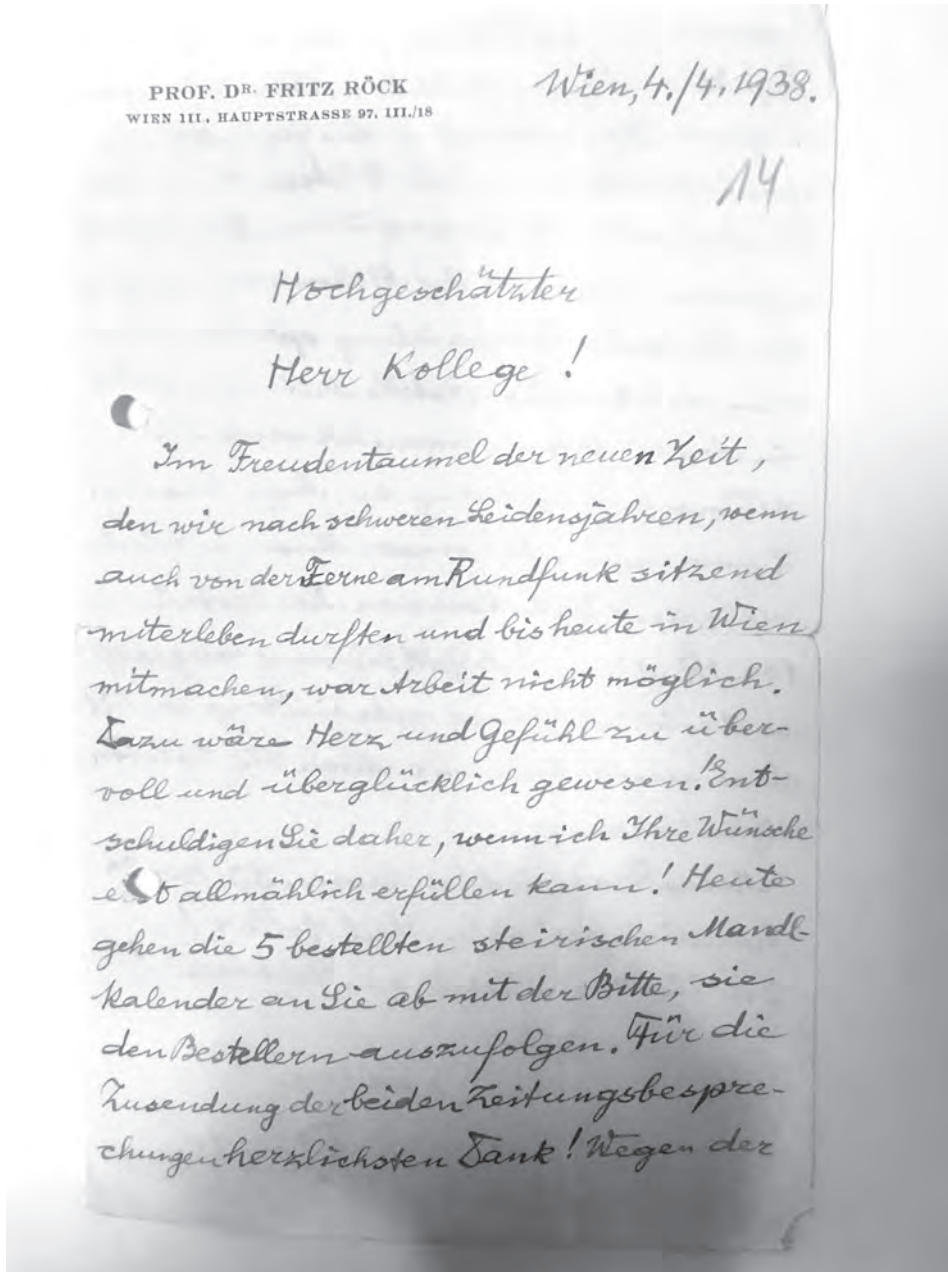 PROF. DR. FRITZ RÖCK
WIEN III., HAUPTSTRASSE 97, III./18
Wien, 4./4. 1938.
14
Hochgeschätzter
Herr Kollege!
Im Freudentaumel der neuen Zeit,
den wir nach schweren Leidensjahren, wenn
auch von der Ferne am Rundfunk sitzend
miterleben durften und bis heute in Wien
mitmachen, war Arbeit nicht möglich.
Dazu wäre Herz und Gefühl zu über-
voll und überglücklich gewesen! Ent-
schuldigen Sie daher, wenn ich Ihre Wünsche
allmählich erfüllen kann! Heute
gehen die 5 bestellten steirischen Mandl-
kalender an Sie ab mit der Bitte, sie
den Bestellern auszufolgen. Für die
Zusendung der beiden Zeitungsbespre-
chungen herzlichsten Dank! Wegen der